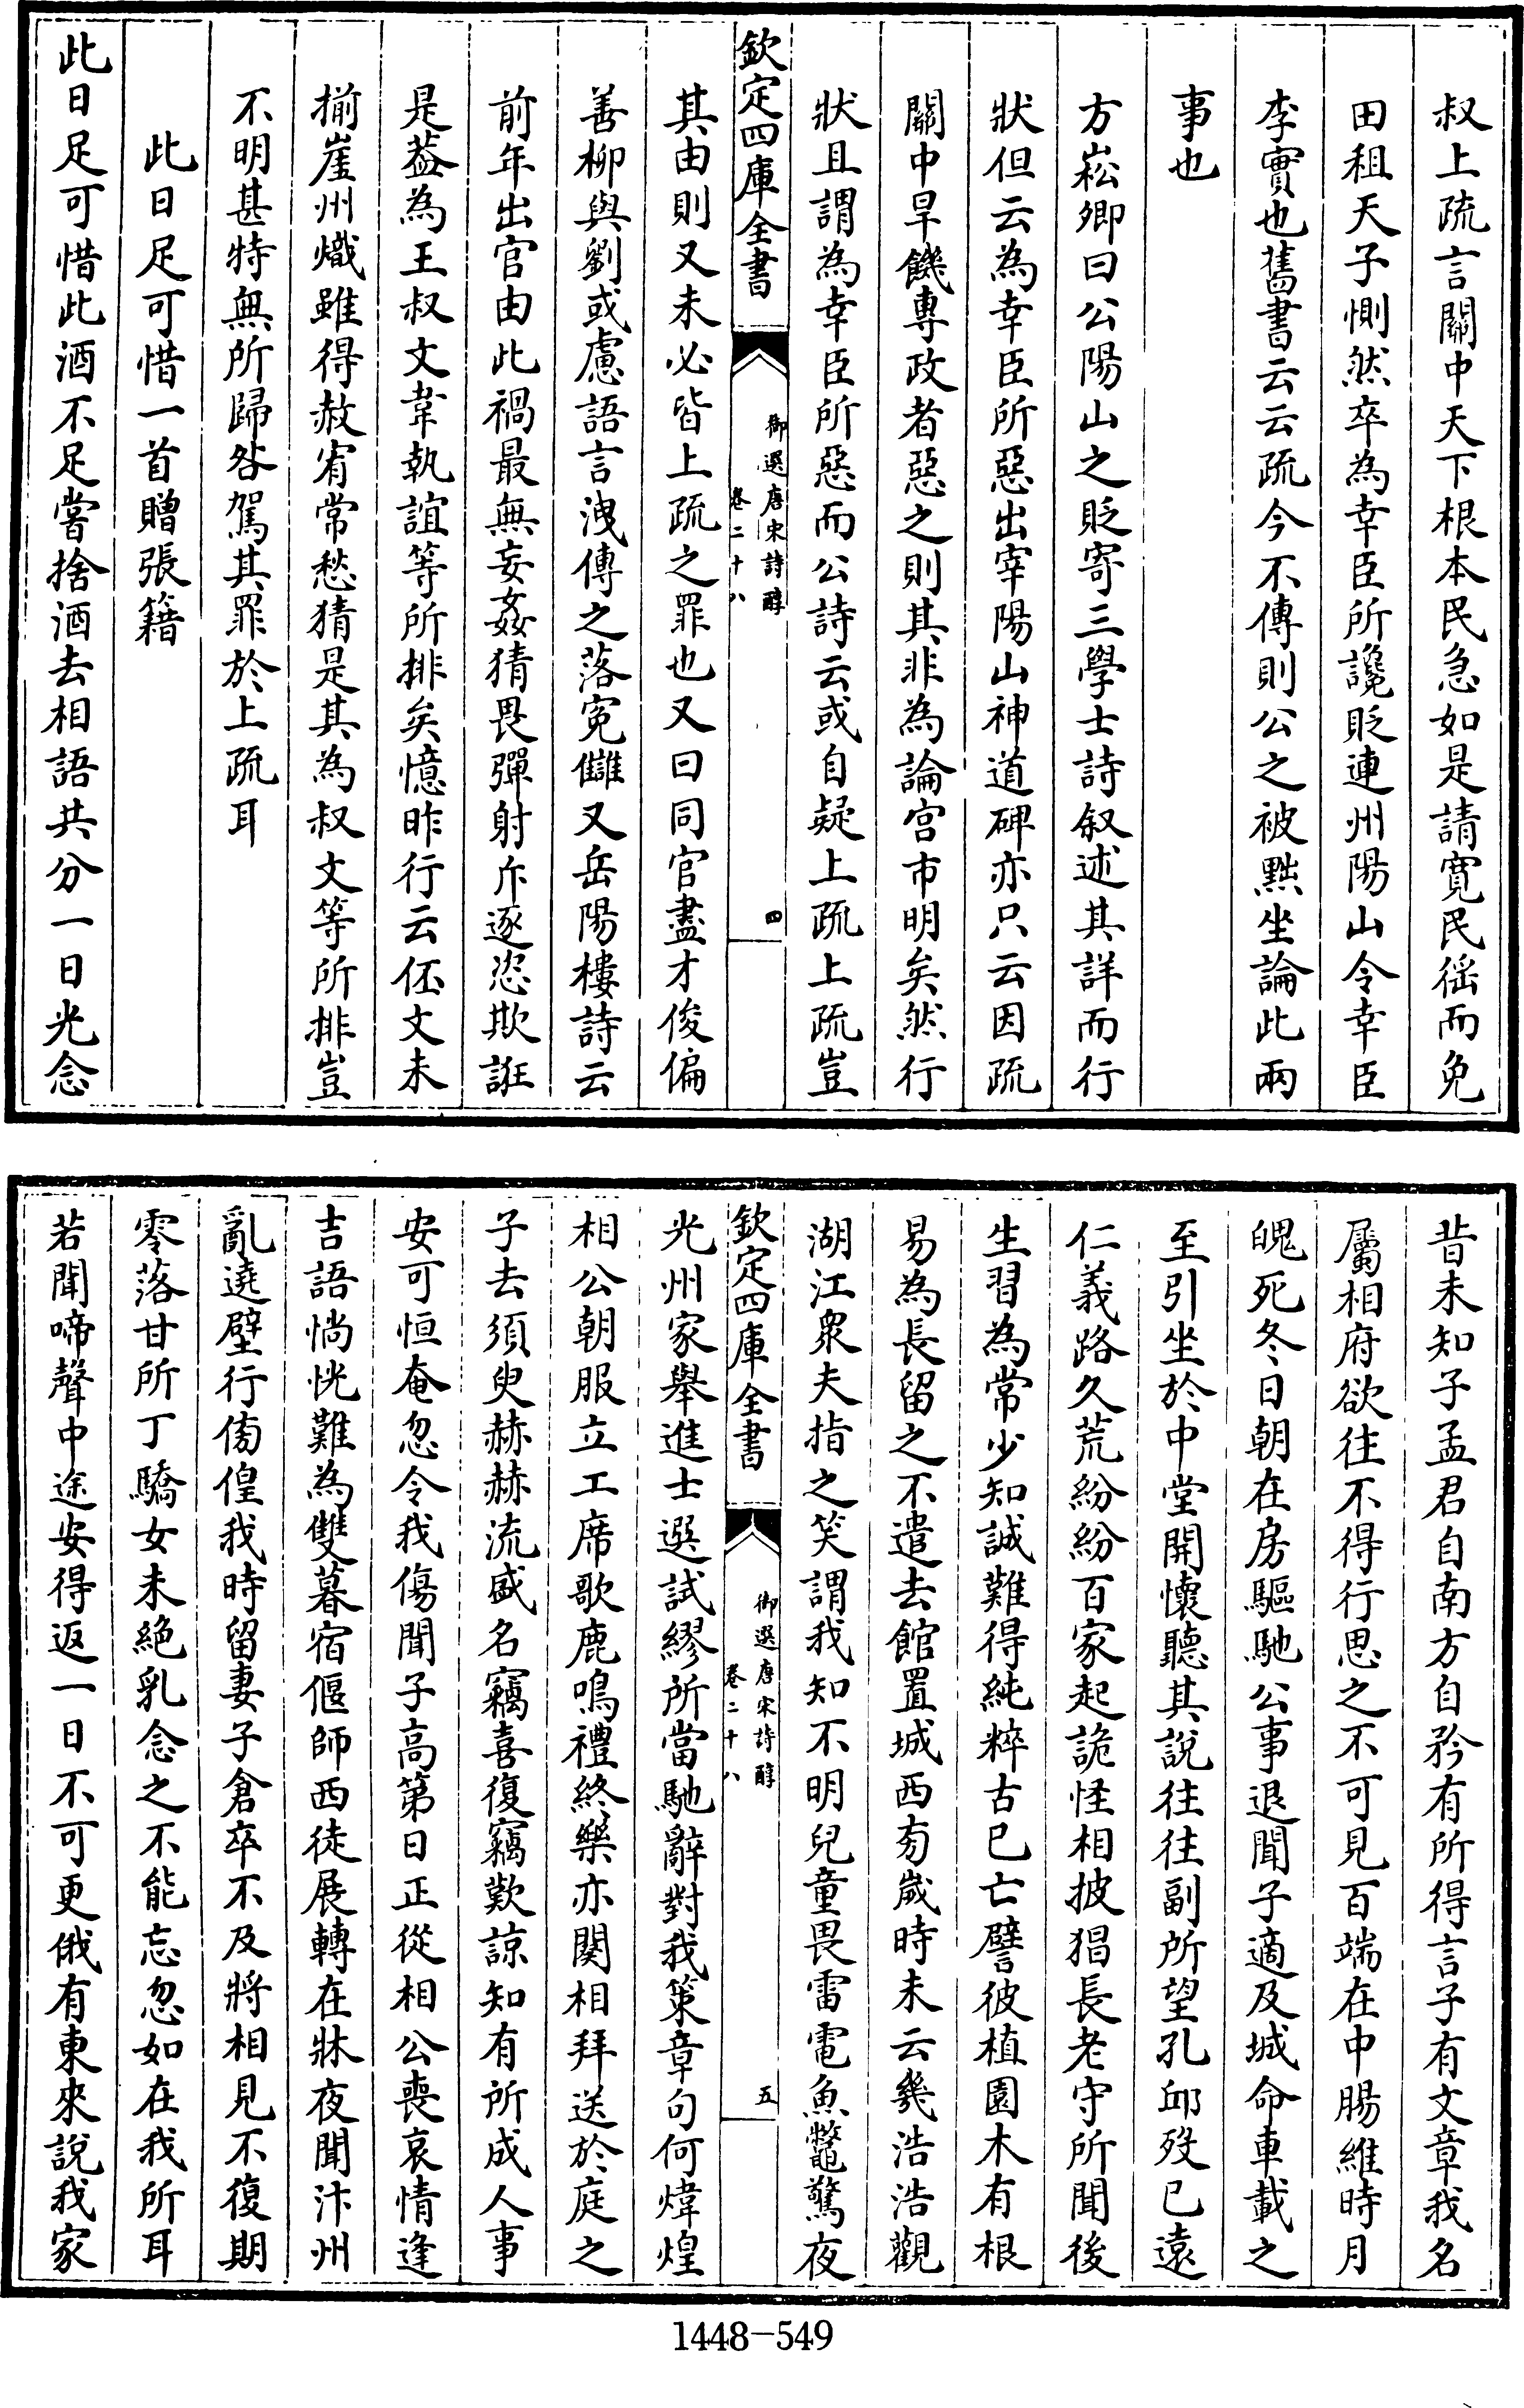 叔上疏言關中天下根本民急如是請寬民徭而免
田租天子惻然卒為幸臣所讒貶連州陽山令幸臣
李實也舊書云云疏今不傳則公之被黜坐論此兩
事也
方崧卿曰公陽山之貶寄三學士詩叙述其詳而行
狀但云為幸臣所惡出宰陽山神道碑亦只云因疏
關中旱饑專政者惡之則其非為論宫市明矣然行
狀且謂為幸臣所惡而公詩云或自疑上疏上疏豈
欽定四庫全書
御選唐宋詩醇
卷二十八
四
其由則又未必皆上疏之罪也又曰同官盡才俊偏
善柳與劉或慮語言洩傳之落寃讎又岳陽樓詩云
前年出官由此禍最無妄姦猜畏彈射斥逐恣欺誑
是葢為王叔文韋執誼等所排矣憶昨行云伾文未
揃崖州熾雖得赦宥常愁猜是其為叔文等所排豈
不明甚特無所歸咎駕其罪於上疏耳
此日足可惜一首贈張籍
此日足可惜此酒不足嘗捨酒去相語共分一日光念
昔未知子孟君自南方自矜有所得言子有文章我名
屬相府欲往不得行思之不可見百端在中腸維時月
魄死冬日朝在房驅馳公事退聞子適及城命車載之
至引坐於中堂開懷聽其說往往副所望孔邱歿已遠
仁義路久荒紛紛百家起詭怪相披猖長老守所聞後
生習為常少知誠難得純粹古已亡譬彼植園木有根
易為長留之不遣去館置城西旁歲時未云幾浩浩觀
湖江衆夫指之笑謂我知不明兒童畏雷電魚鼈驚夜
欽定四庫全書
御選唐宋詩醇
卷二十八
五
光州家舉進士選試繆所當馳辭對我策章句何煒煌
相公朝服立工席歌鹿鳴禮終樂亦闋相拜送於庭之
子去須臾赫赫流盛名竊喜復竊歎諒知有所成人事
安可恒奄忽令我傷聞子高第日正從相公喪哀情逢
吉語惝恍難為雙暮宿偃師西徒展轉在牀夜聞汴州
亂遶壁行傍偟我時留妻子倉卒不及將相見不復期
零落甘所丁驕女未絶乳念之不能忘忽如在我所耳
若聞啼聲中途安得返一日不可更俄有東來說我家
1448-549